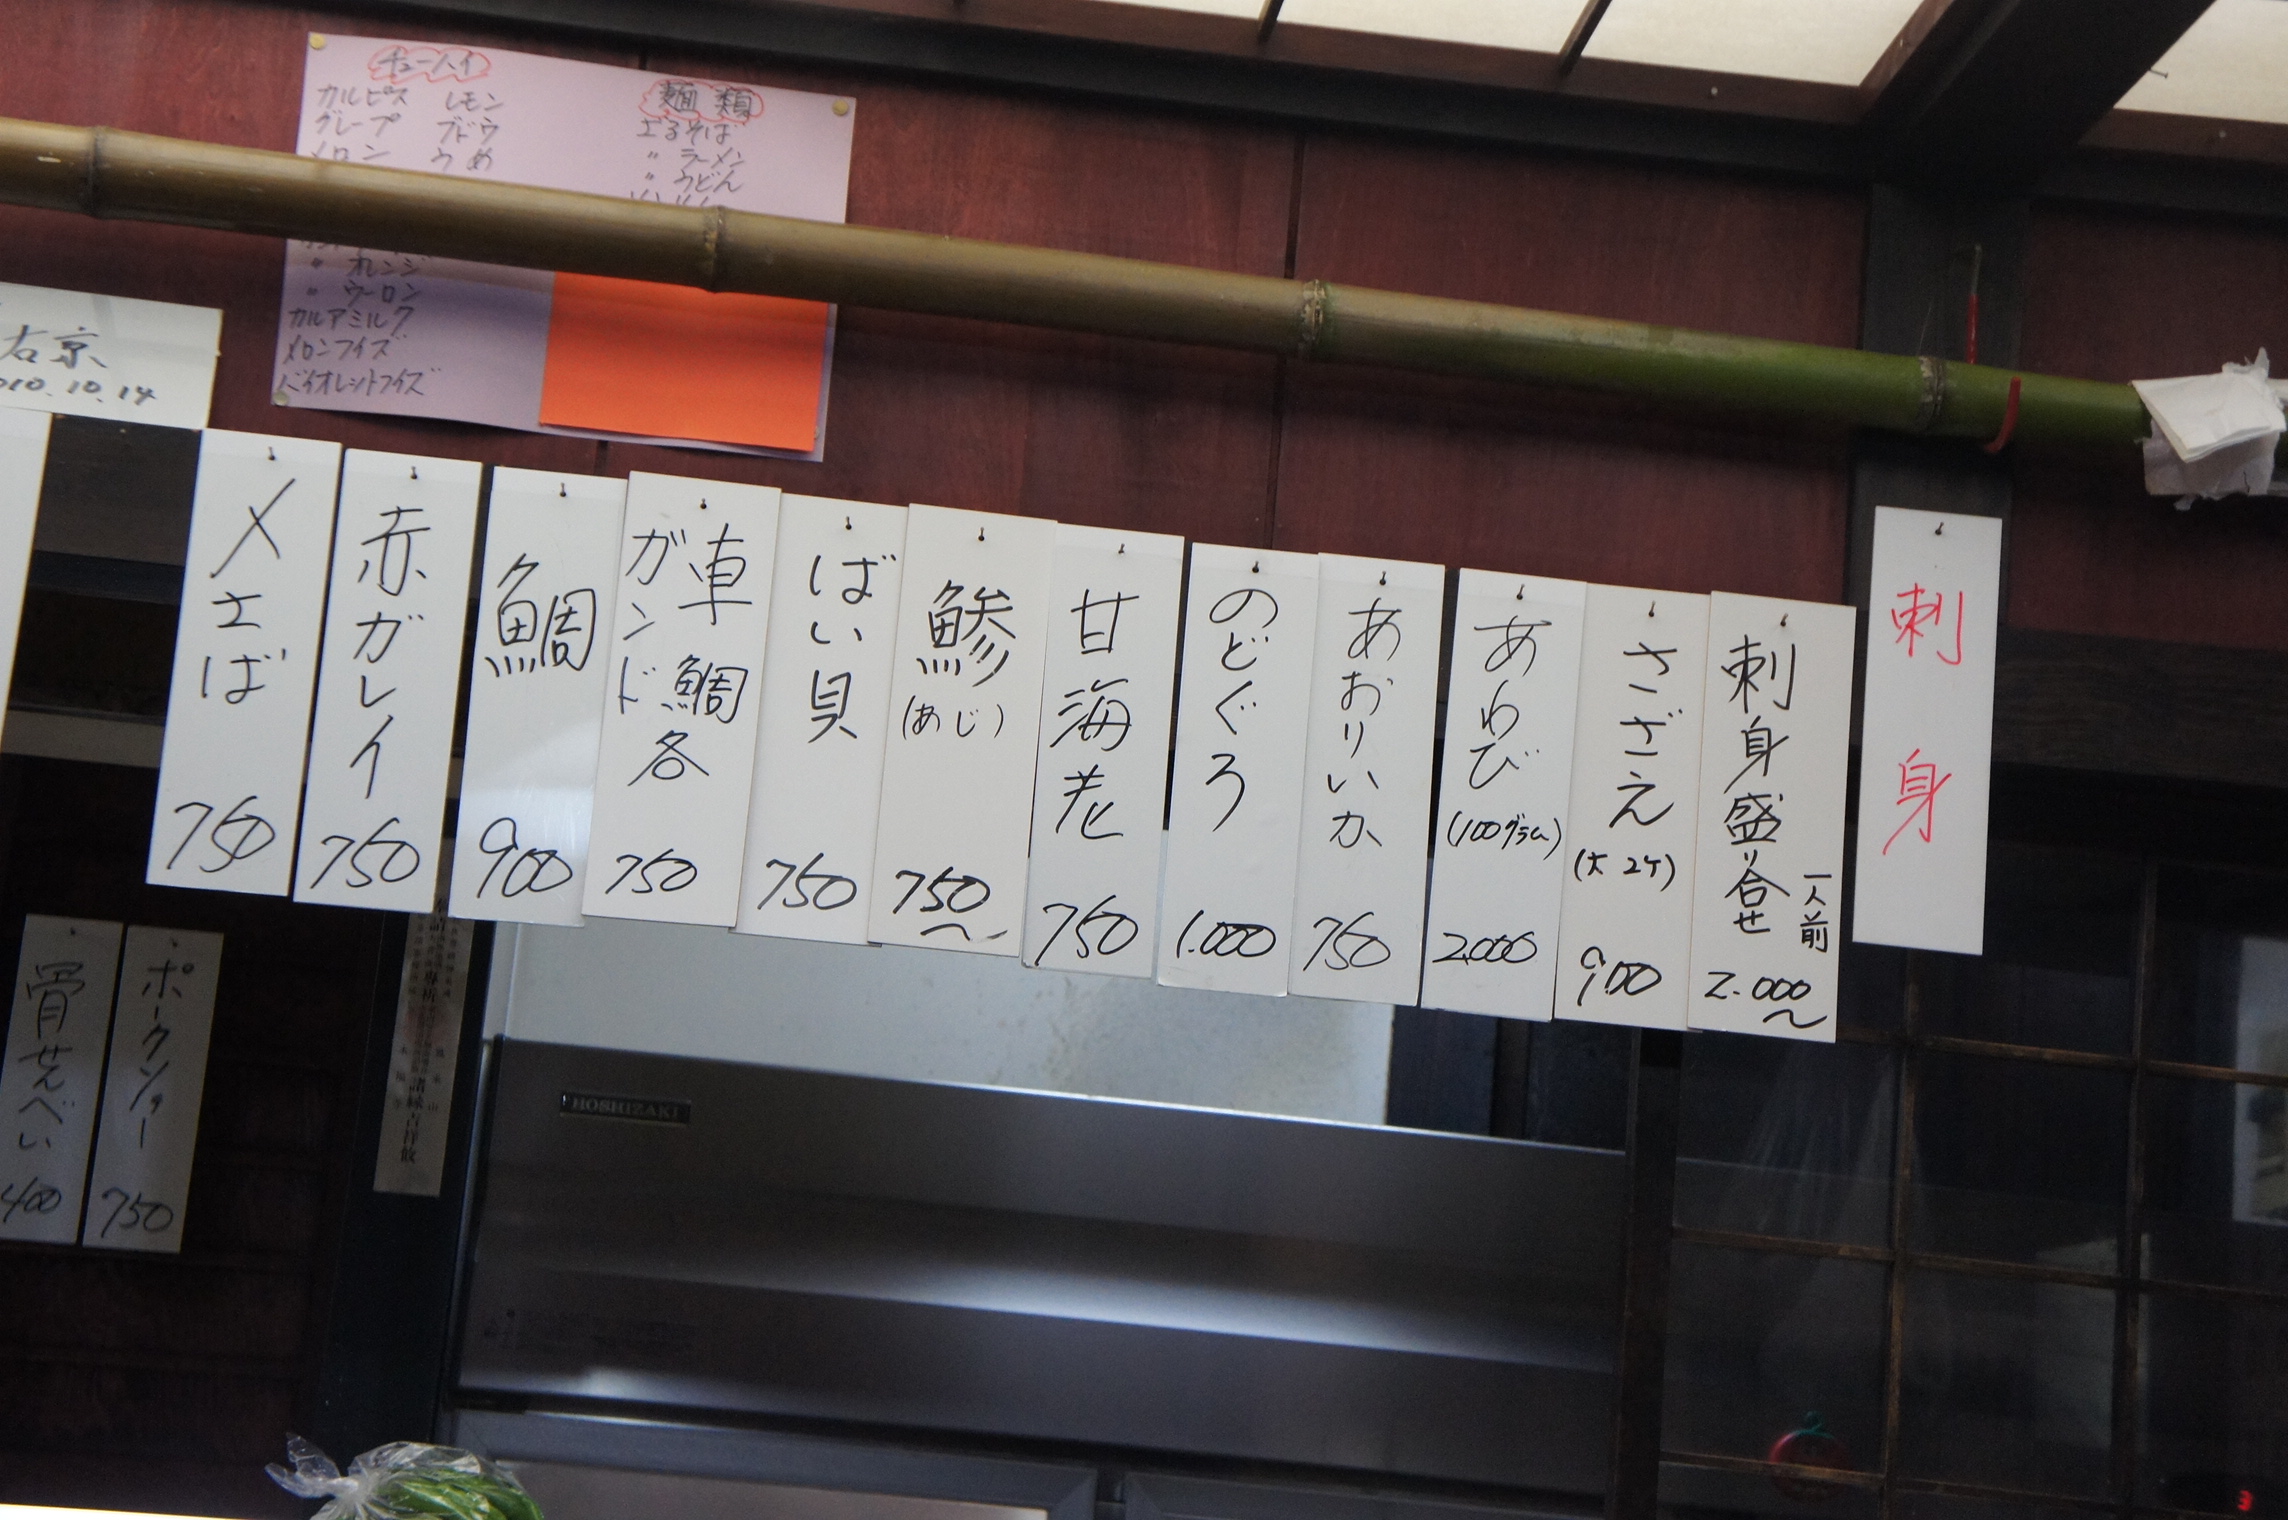 チューハイ
カルピス レモン
グレープ ブドウ
メロン うめ
〃 オレンジ
〃 ウーロン
カルアミルク
メロンフイズ
バイオレットフイズ
麺類
ざるそば
〃 ラーメン
〃 うどん
右京
010.10.14
刺身
刺身盛り合せ
一人前
2.000〜
さざえ
(大2ケ)
900
あわび
(100グラム)
2.000
あおりいか
750
のどぐろ
1.000
甘海老
750
鯵
(あじ)
750〜
ばい貝
750
車鯛
ガンド
各
750
鯛
900
赤ガレイ
750
〆さば
750
ポークソテー
750
骨せんべい
400
HOSHIZAKI
3